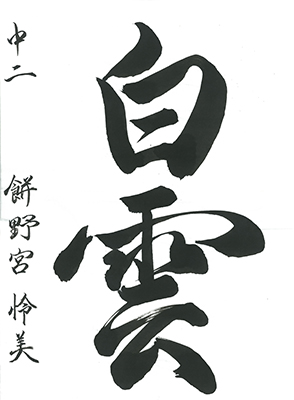 白雲
中二 餅野宮怜美